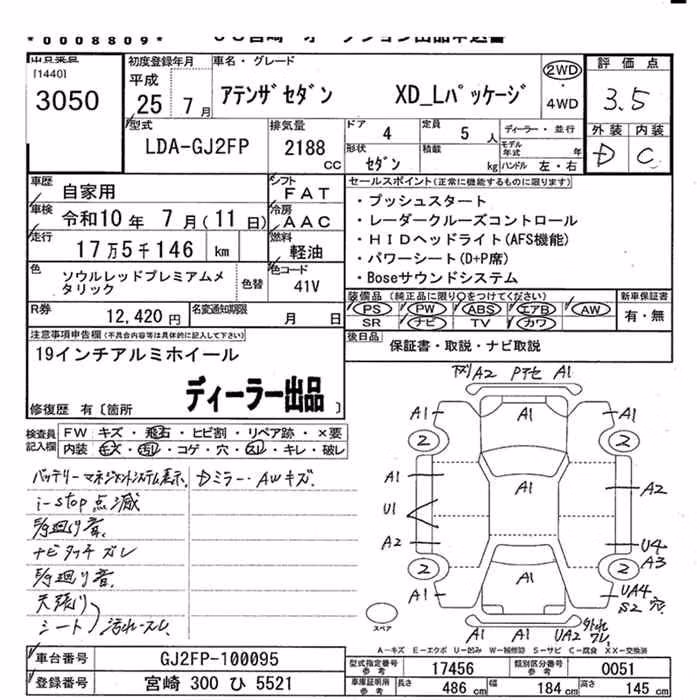 *0008809*
[1440]
3050
初度登録年月
平成
25 年 7 月
車名・グレード
アテンザセダン XD_Lパッケージ
2WD
・
4WD
評価点
3.5
外装 内装
D C
型式
LDA-GJ2FP
排気量
2188
CC
ドア 4
定員 5 人
形状 セダン
積載 kg
ディーラー・並行
モデル年式 年
ハンドル 左・右
車歴 自家用
シフト FAT
車検 令和10年 7月(11日)
冷房 AAC
走行 17万5千146 km
燃料 軽油
色 ソウルレッドプレミアムメタリック
色替
色コード 41V
R券 12,420円
名変通知期限 月 日
セールスポイント(正常に機能するものに限ります)
・プッシュスタート
・レーダークルーズコントロール
・HIDヘッドライト(AFS機能)
・パワーシート(D+P席)
・Boseサウンドシステム
装備品(純正品に限り○をつけてください)
PS PW ABS エアB AW
SR ナビ TV カワ
新車保証書
有・無
後日品 保証書・取説・ナビ取説
注意事項申告欄(不具合内容等は具体的に記入して下さい)
19インチアルミホイール
ディーラー出品
修復歴 有〔箇所 〕
検査員記入欄
FW キズ・飛石・ヒビ割・リペア跡・×要
内装 キズ・汚れ・コゲ・穴・スレ・キレ・破レ
バッテリーマネジメントシステム表示、Dミラー・AWキズ.
i-stop点滅
ナビタッチズレ
天張り
シート 汚れ・スレ
A2 A1
A1 A1 A1
2 2
A1 A1 A2
U1
A2 U4
A3
2 2
A1 A1 UA4
S2 穴
A1 A1 UA2
スペア
A-キズ E-エクボ U-凹み W-補修跡 S-サビ C-腐食 XX-交換済
車台番号 GJ2FP-100095
登録番号 宮崎 300 ひ 5521
型式指定番号 参考 17456
類別区分番号 参考 0051
車庫証明用 参考 長さ 486 cm 幅 184 cm 高さ 145 cm